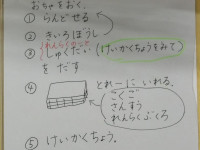 おちゃをおく。
① らんどせる
② きいろぼうし
れんらくちょう
③ しゅくだい (けいかくちょうをみて)
をだす
④ とれーにいれる。
こくご
さんすう
れんらくぶくろ
⑤ けいかくちょう。